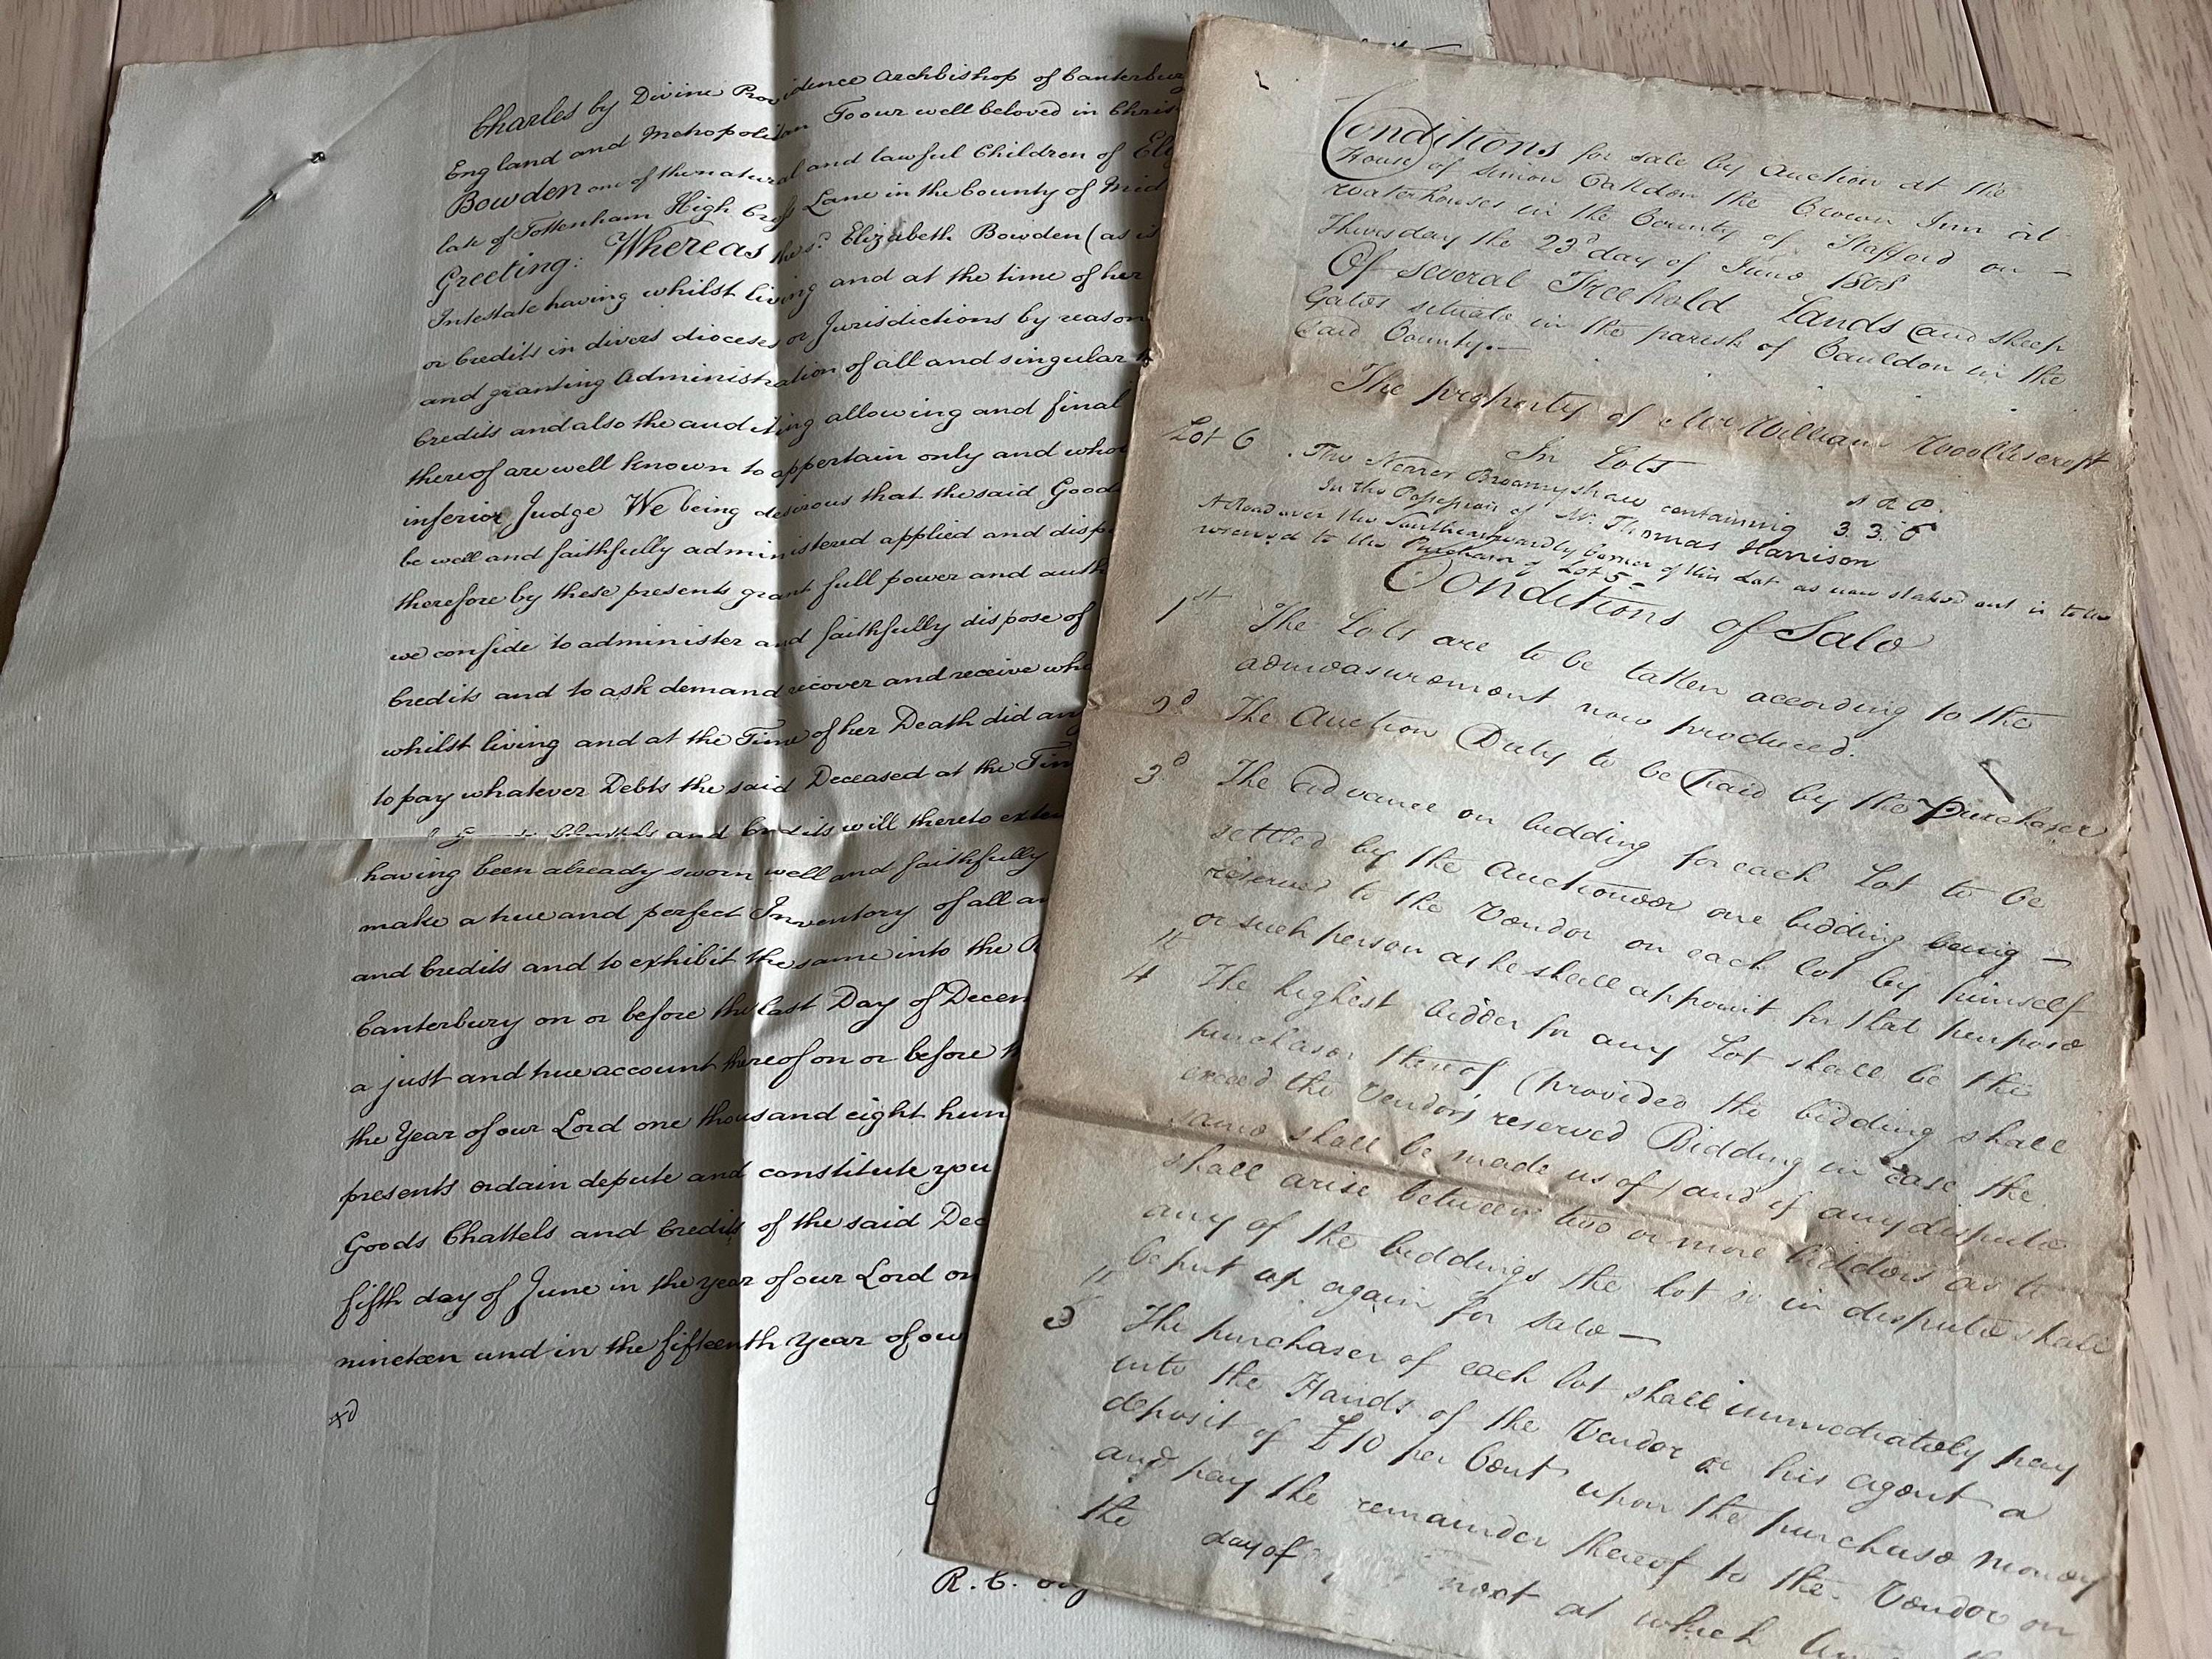 Charles by Divine Providence Archbishop of Canterbury
England and Metropolitan To our well beloved in Chris
Bowden one of the natural and lawful Children of Eli
late of Tottenham High Cross Lane in the County of Mid
Greeting: Whereas the sd. Elizabeth Bowden (as is
Intestate having whilst living and at the time of her
or Credits in divers dioceses or Jurisdictions by reason
and granting Administration of all and singular
Credits and also the auditing allowing and final
thereof are well known to appertain only and who
inferior Judge We being desirous that the said Goods
be well and faithfully administered applied and disp
therefore by these presents grant full power and auth
we confide to administer and faithfully dispose of
Credits and to ask demand recover and receive wha
whilst living and at the Time of her Death did any
to pay whatever Debts the said Deceased at the Tim
Chattels and Credits will thereto exten
having been already sworn well and faithfully
make a true and perfect Inventory of all an
and Credits and to exhibit the same into the R
Canterbury on or before the last Day of Decem
a just and true account thereof on or before th
the Year of our Lord one thousand eight hun
presents ordain depute and constitute you
Goods Chattels and Credits of the said Dec
fifth day of June in the year of our Lord on
nineteen and in the fifteenth Year of our
R. C.
Conditions for sale by Auction at the
House of Simon Oakden the Crown Inn at
Waterhouses in the County of Stafford on —
Thursday the 23d day of June 1808
Of several Freehold Lands and sheep
Gates situate in the parish of Cauldon in the
said County. —
The property of Mr William Woolliscroft
In Lots
A R P.
Lot 6 The Nerrer Broomyshaw containing 3. 3. 6
In the Possession of Mr. Thomas Harrison
A Road over the Southernwardly corner of this Lot as now staked out is to be
reserved to the Purchaser of Lot 5 —
Conditions of Sale
1st The Lots are to be taken according to the
admeasurement now produced.
2d The Auction Duty to be paid by the Purchaser
3d The advance on bidding for each Lot to be
settled by the Auctioneer one bidding being —
reserved to the Vendor on each lot by himself
or such person as he shall appoint for that purpose
4th The highest bidder for any Lot shall be the
purchaser thereof (provided the bidding shall
exceed the Vendors reserved Bidding in case the
same shall be made us of) and if any dispute
shall arise between two or more bidders as to
any of the biddings the lot so in dispute shall
be put up again for sale —
5th The purchaser of each lot shall immediately pay
into the Hands of the Vendor or his agent a
deposit of £10 per Cent upon the purchase money
and pay the remainder thereof to the Vendor on
the day of next at which